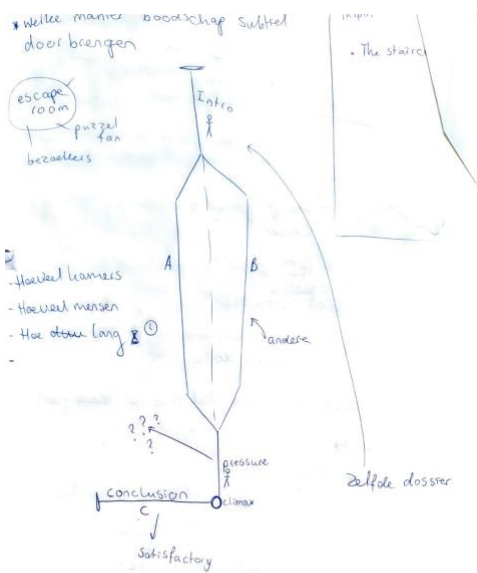 * welke manier boodschap subtiel
door brengen
• The stairc
escape
room
puzzel
fan
bezoekers
Intro
A
B
- Hoeveel kamers
- Hoeveel mensen
- Hoe lang
-
andere
? ? ?
?
pressure
Zelfde dossier
conclusion
climax
C
Satisfactory